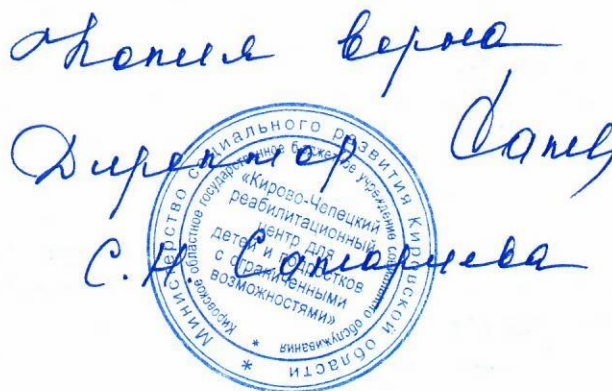 Копия верна
Директор
С.Н
Министерство социального развития Кировской области *
Кировское областное государственное бюджетное учреждение социального обслуживания *
«Кирово-Чепецкий
реабилитационный
центр для
детей и подростков
с ограниченными
возможностями»